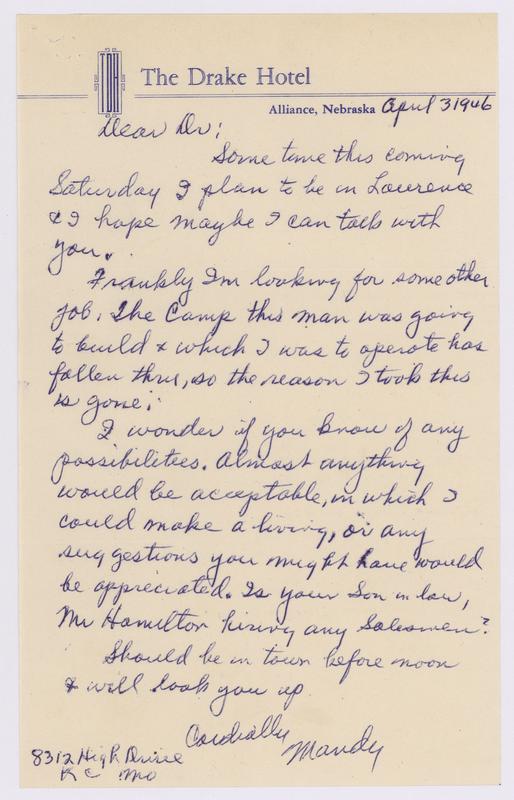 TDH
The Drake Hotel
Alliance, Nebraska April 3 1946
Dear Dr:
Some time this coming
Saturday I plan to be in Lawrence
& I hope maybe I can talk with
you.
Frankly I'm looking for some other
job. The Camp this man was going
to build & which I was to operate has
fallen thru, so the reason I took this
is gone.
I wonder if you know of any
possibilities. Almost anything
would be acceptable, in which I
could make a living, or any
suggestions you might have would
be appreciated. Is your Son in law,
Mr Hamilton hiring any Salesmen?
Should be in town before noon
& will look you up.
Cordially
Mandy
8312 High Drive
K C Mo